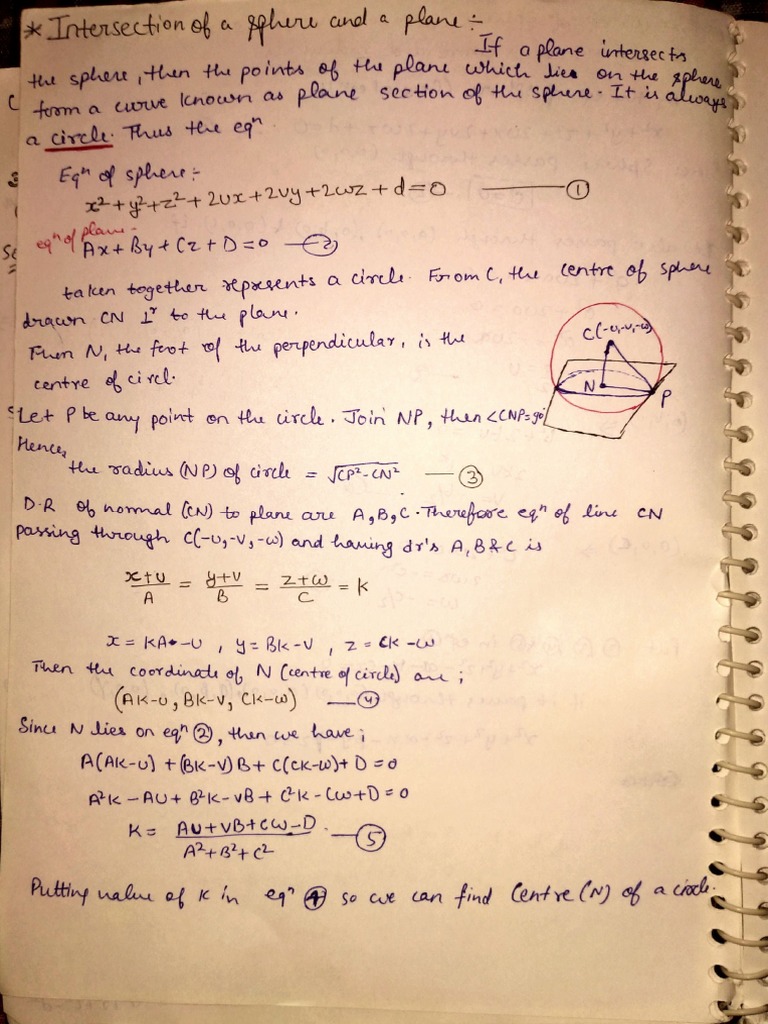 * Intersection of a sphere and a plane :-
If a plane intersects
the sphere, then the points of the plane which lies on the sphere
form a curve known as plane section of the sphere. It is always
a circle. Thus the eqⁿ
Eqⁿ of sphere :-
x²+y²+z²+2ux+2vy+2wz+d=0 ——— ①
eqⁿ of plane -
Ax+By+Cz+D=0 —②
taken together represents a circle. From C, the centre of sphere
drawn CN ⊥ʳ to the plane.
Then N, the foot of the perpendicular, is the
centre of circl.
C(-u,-v,-w)
N
P
Let P be any point on the circle. Join NP, then <CNP=90°
Hence,
the radius (NP) of circle = √CP²-CN² — ③
D.R of normal (CN) to plane are A,B,C. Therefore eqⁿ of line CN
passing through C(-u,-v,-w) and having dr's A,B&C is
x+u/A = y+v/B = z+w/C = K
x = KA-u , y = BK-v , z = CK-w
Then the coordinate of N (centre of circle) are ;
(AK-u, BK-v, CK-w) —④
Since N lies on eqⁿ ②, then we have ;
A(AK-u) + (BK-v)B + C(CK-w)+D=0
A²K-Au+B²K-vB+C²K-Cw+D=0
K = Au+vB+Cw-D/A²+B²+C² . —⑤
Putting value of K in eqⁿ ④ so we can find Centre (N) of a circle.